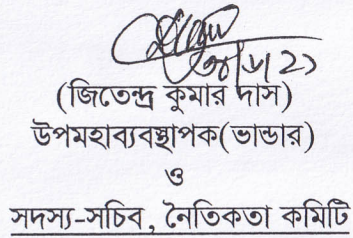 (জিতেন্দ্র কুমার দাস)
উপমহাব্যবস্থাপক(ভান্ডার)
ও
সদস্য-সচিব, নৈতিকতা কমিটি